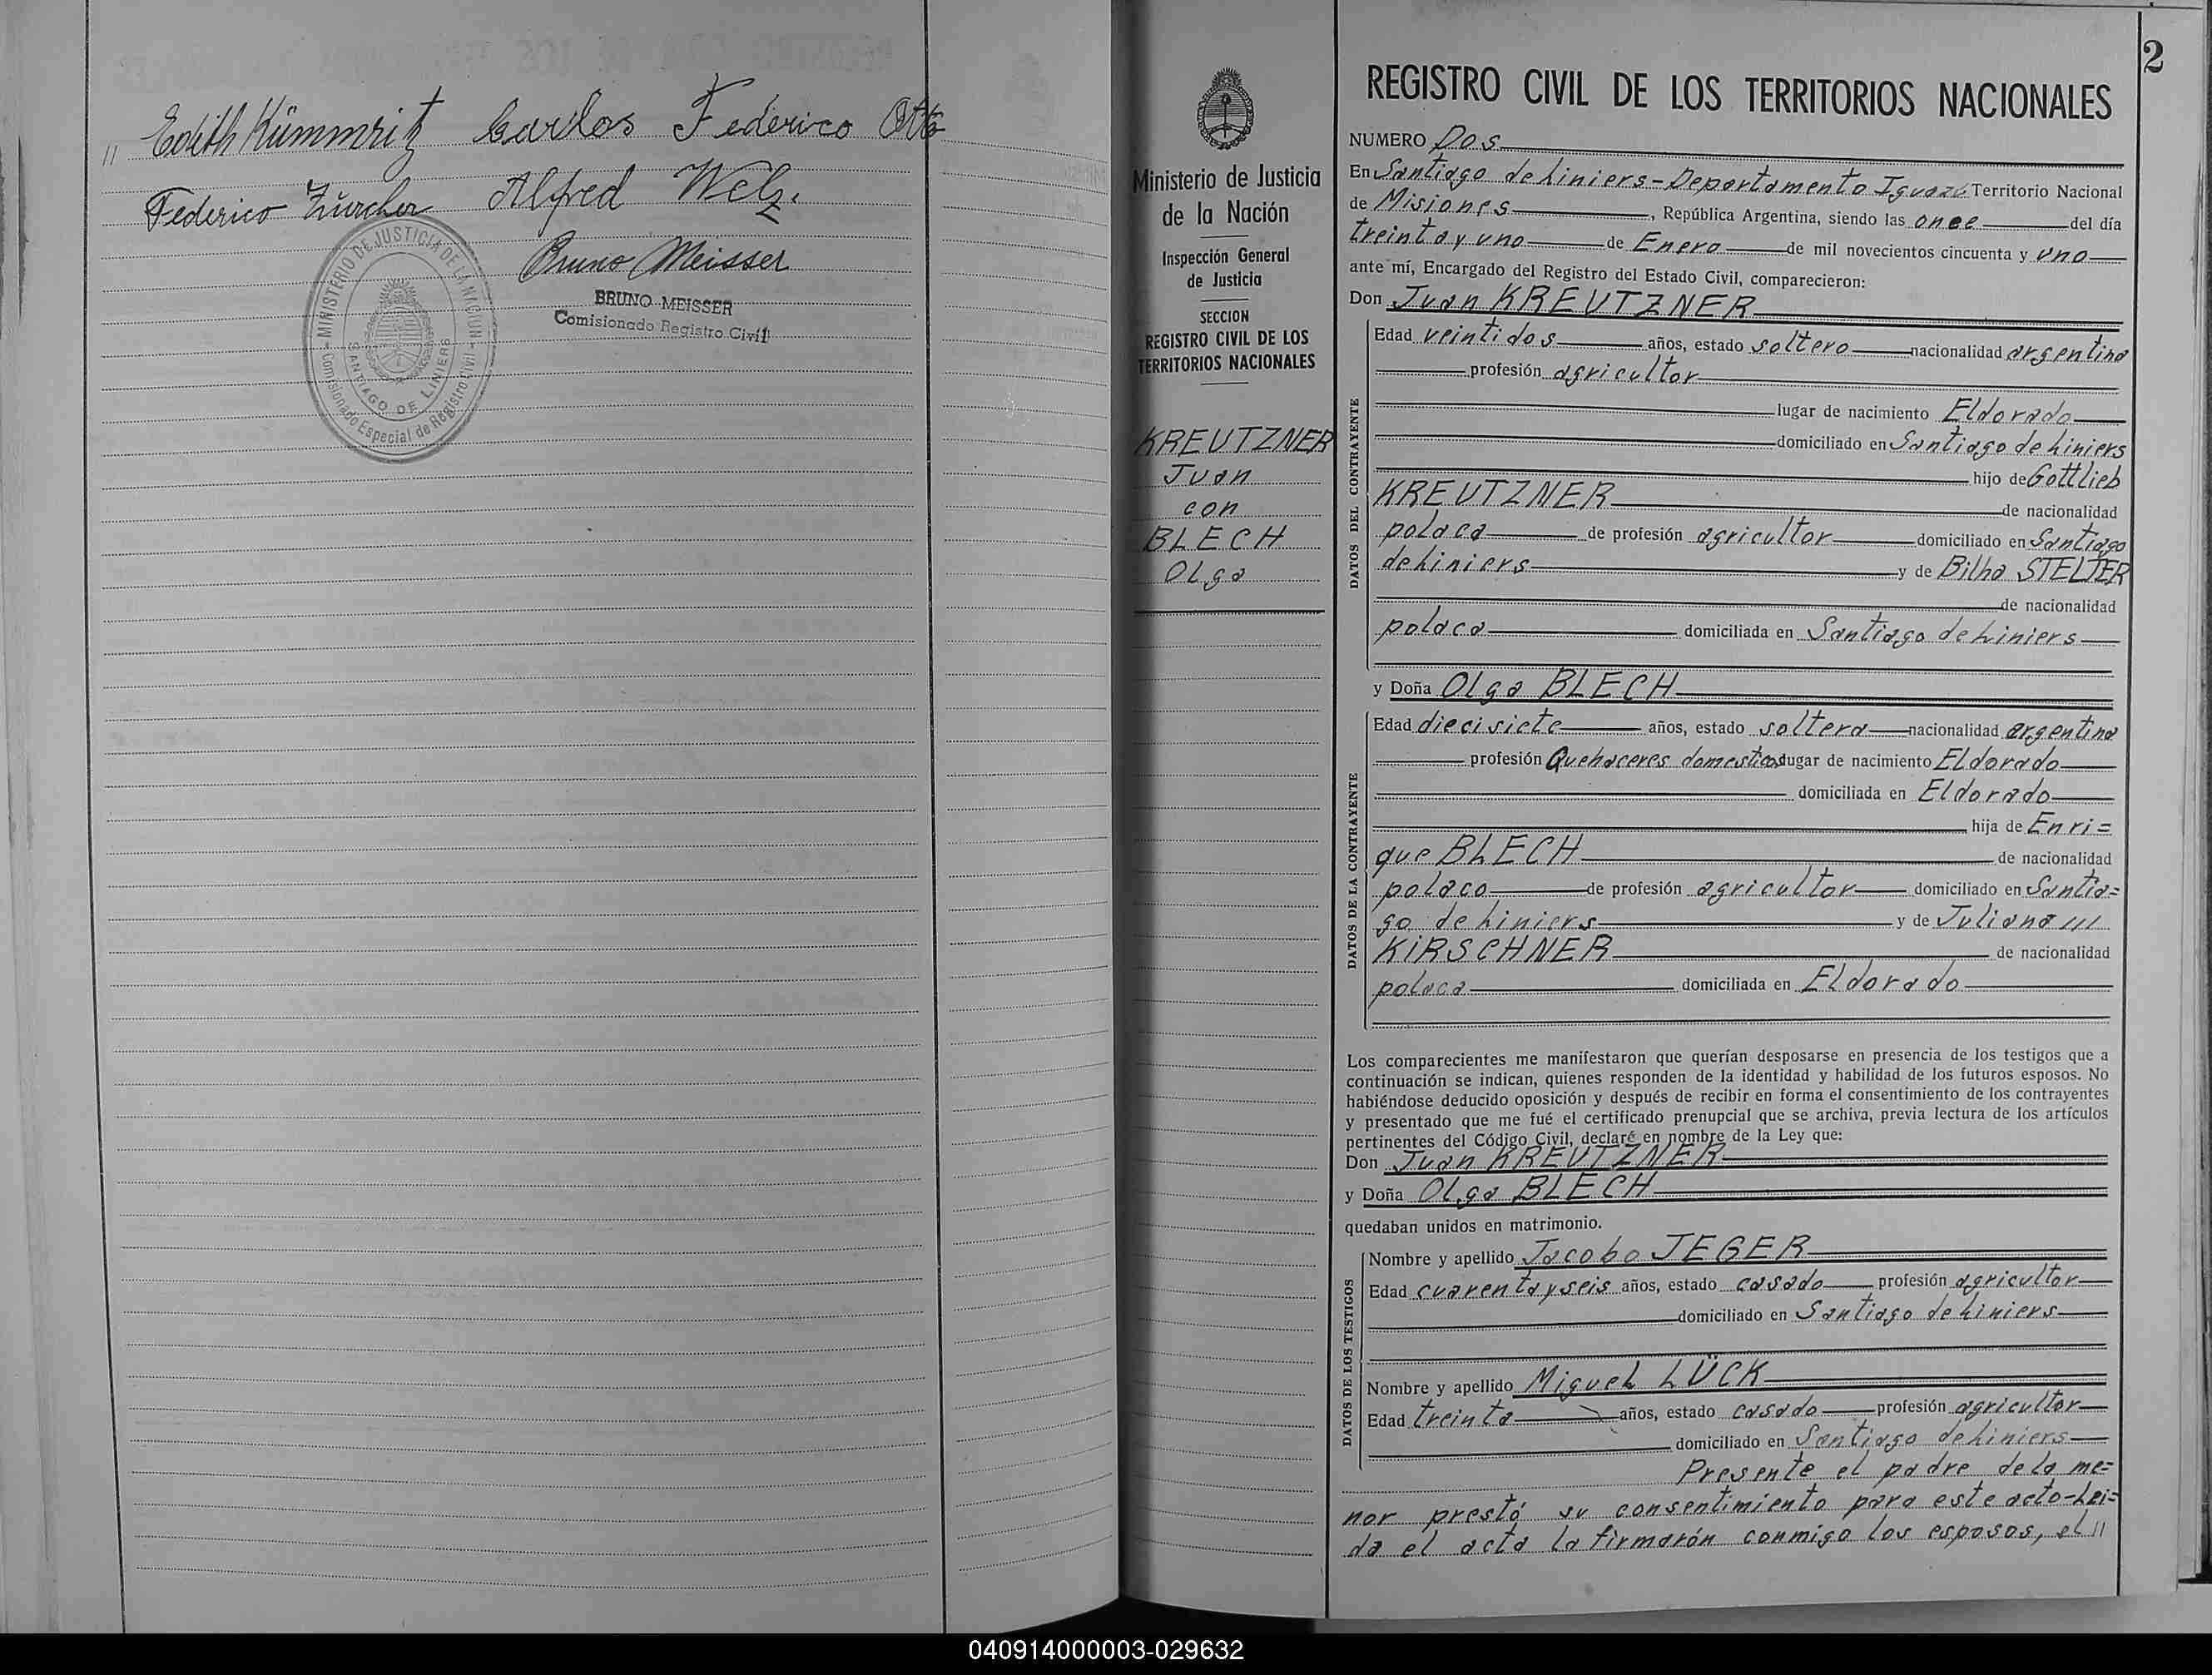 " Edith Kümmritz Carlos Federico Otto
Federico Zürcher Alfred Welz.
Bruno Meisser
BRUNO MEISSER
Comisionado Registro Civil
MINISTERIO DE JUSTICIA DE LA NACION
SANTIAGO DE LINIERS
Comisionado Especial de Registro Civil
Ministerio de Justicia
de la Nación
Inspección General
de Justicia
SECCION
REGISTRO CIVIL DE LOS
TERRITORIOS NACIONALES
KREUTZNER
Juan
con
BLECH
Olga
2
REGISTRO CIVIL DE LOS TERRITORIOS NACIONALES
NUMERO Dos
En Santiago de Liniers - Departamento Iguazú Territorio Nacional
de Misiones, República Argentina, siendo las once del día
treinta y uno de Enero de mil novecientos cincuenta y uno
ante mí, Encargado del Registro del Estado Civil, comparecieron:
Don Juan KREUTZNER
DATOS DEL CONTRAYENTE
Edad veintidos años, estado soltero nacionalidad argentina
profesión agricultor
lugar de nacimiento Eldorado
domiciliado en Santiago de Liniers
hijo de Gottlieb
KREUTZNER de nacionalidad
polaca de profesión agricultor domiciliado en Santiago
de Liniers y de Bilha STELTER
de nacionalidad
polaca domiciliada en Santiago de Liniers
y Doña Olga BLECH
DATOS DE LA CONTRAYENTE
Edad diecisiete años, estado soltera nacionalidad argentina
profesión Quehaceres domesticos lugar de nacimiento Eldorado
domiciliada en Eldorado
hija de Enri=
que BLECH de nacionalidad
polaco de profesión agricultor domiciliado en Santia=
go de Liniers y de Juliana ///
KIRSCHNER de nacionalidad
polaca domiciliada en Eldorado
Los comparecientes me manifestaron que querían desposarse en presencia de los testigos que a
continuación se indican, quienes responden de la identidad y habilidad de los futuros esposos. No
habiéndose deducido oposición y después de recibir en forma el consentimiento de los contrayentes
y presentado que me fué el certificado prenupcial que se archiva, previa lectura de los artículos
pertinentes del Código Civil, declaré en nombre de la Ley que:
Don Juan KREUTZNER
y Doña Olga BLECH
quedaban unidos en matrimonio.
DATOS DE LOS TESTIGOS
Nombre y apellido Jacobo JEGER
Edad cuarenta y seis años, estado casado profesión agricultor
domiciliado en Santiago de Liniers
Nombre y apellido Miguel LÜCK
Edad treinta años, estado casado profesión agricultor
domiciliado en Santiago de Liniers
Presente el padre de la me=
nor prestó su consentimiento para este acto - Lei=
da el acta la firmarón conmigo los esposos, el //
040914000003-029632